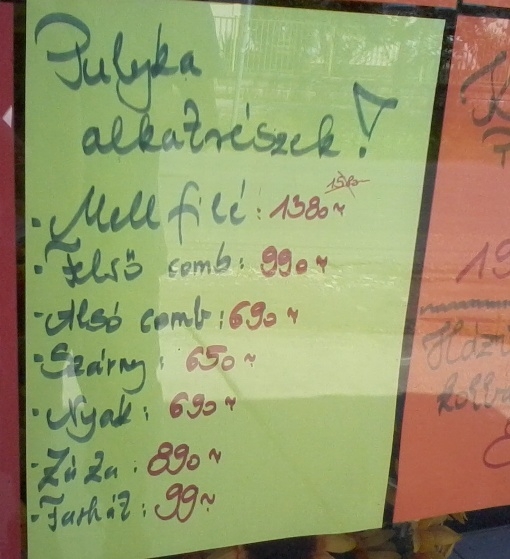 Pulyka
alkatrészek!
1580
- Mell filé: 1380~
- Felső comb: 990~
- Alsó comb: 690~
- Szárny: 650~
- Nyak: 690~
- Zúza: 890~
- Farhát: 99~
19
Házi
kolbá